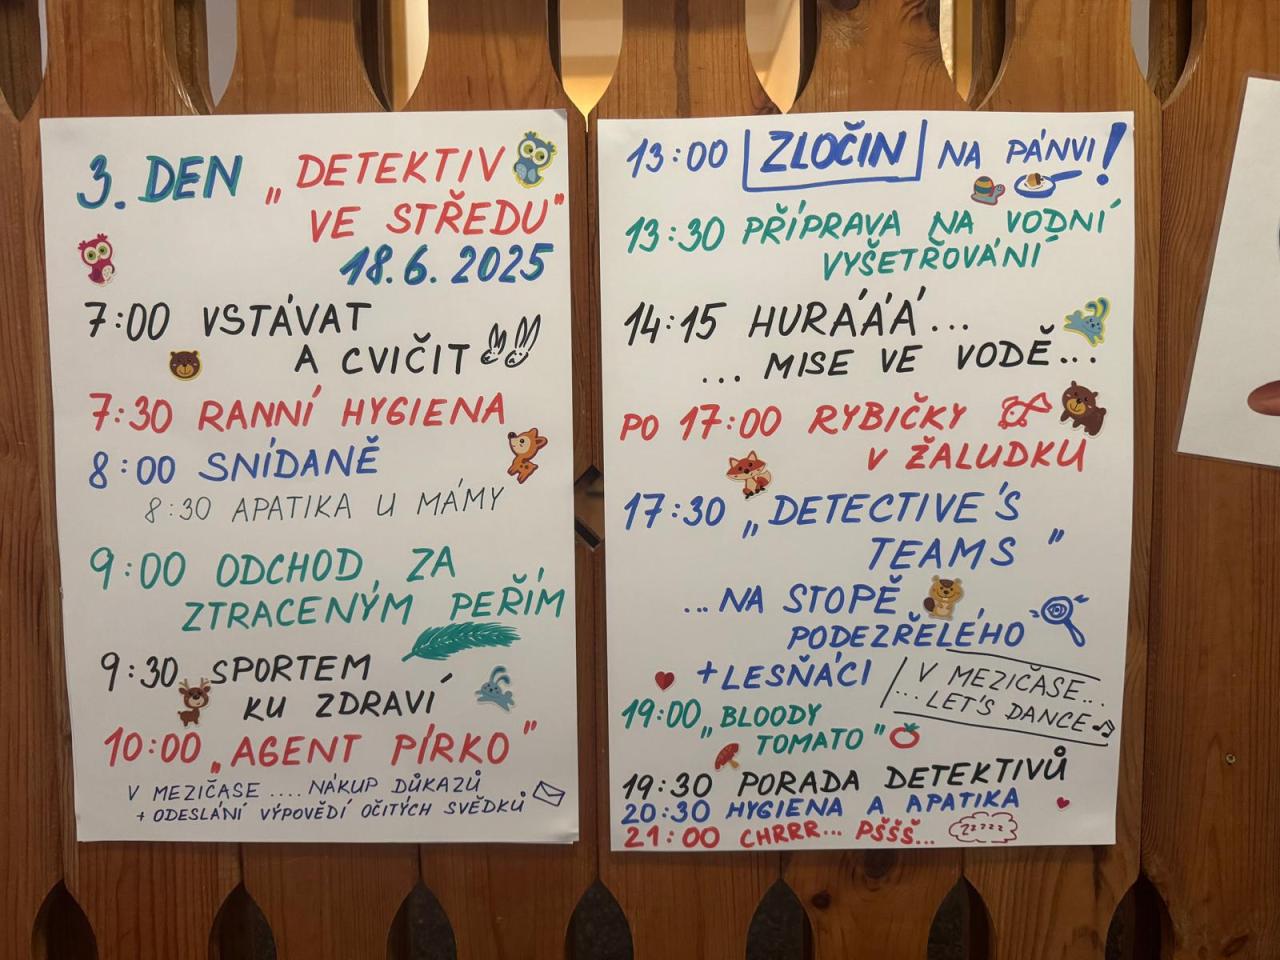 3. DEN „DETEKTIV
VE STŘEDU"
18.6.2025
7:00 VSTÁVAT
A CVIČIT
7:30 RANNÍ HYGIENA
8:00 SNÍDANĚ
8:30 APATIKA U MÁMY
9:00 ODCHOD ZA
ZTRACENÝM PEŘÍM
9:30 SPORTEM
KU ZDRAVÍ
10:00 „AGENT PÍRKO"
V MEZIČASE .... NÁKUP DŮKAZŮ
+ ODESLÁNÍ VÝPOVĚDÍ OČITÝCH SVĚDKŮ
13:00 ZLOČIN NA PÁNVI!
13:30 PŘÍPRAVA NA VODNÍ
VYŠETŘOVÁNÍ
14:15 HURÁÁÁ...
... MISE VE VODĚ...
PO 17:00 RYBIČKY
V ŽALUDKU
17:30 „DETECTIVE'S
TEAMS"
...NA STOPĚ
PODEZŘELÉHO
+LESŇÁCI
V MEZIČASE...
... LET'S DANCE
19:00 „BLOODY
TOMATO"
19:30 PORADA DETEKTIVŮ
20:30 HYGIENA A APATIKA
21:00 CHRRR... PŠŠŠ...
zzzzz